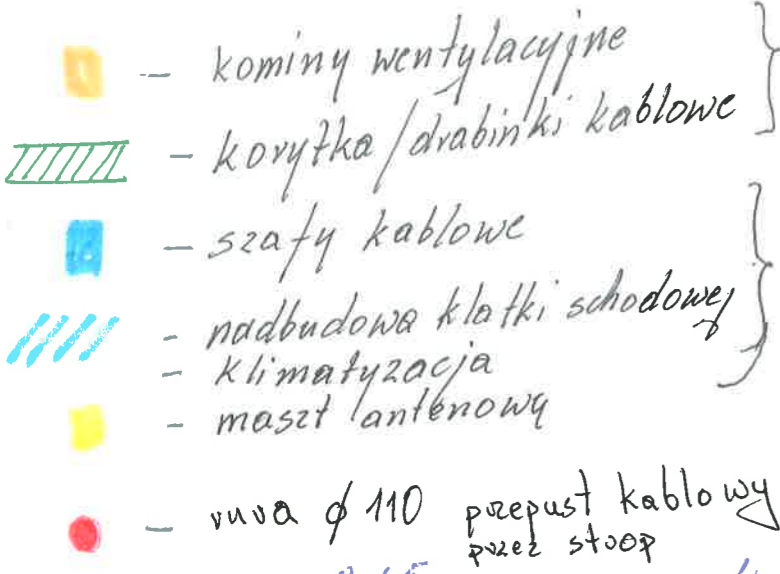 – kominy wentylacyjne
– korytka/drabinki kablowe
– szafy kablowe
– nadbudowa klatki schodowej
– klimatyzacja
– maszt antenowy
– rura ϕ 110 przepust kablowy
przez strop